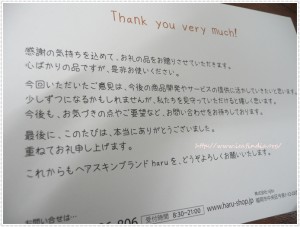 Thank you very much!
感謝の気持ちを込めて、お礼の品をお贈りさせていただきます。
心ばかりの品ですが、是非お使いください。
今回いただいたご意見は、今後の商品開発やサービスの提供に活かしていきたいと思います。
少しずつになるかもしれませんが、私たちを見守っていただけると嬉しく思います。
今後も、お気づきの点やご要望など、お問い合わせをお待ちしております。
最後に、このたびは、本当にありがとうございました。
重ねてお礼申し上げます。
これからもヘアスキンケアブランドharuを、どうぞよろしくお願いいたします。
お問い合せは…
806 受付時間 8:30~21:00
www.haru-shop.jp